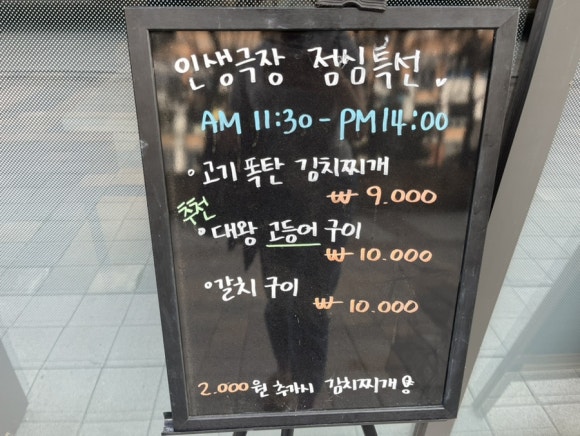 인생극장 점심특선
AM 11:30 - PM 14:00
고기 폭탄 김치찌개
₩ 9.000
추천
대왕 고등어 구이
₩ 10.000
갈치 구이
₩ 10.000
2.000원 추가시 김치찌개